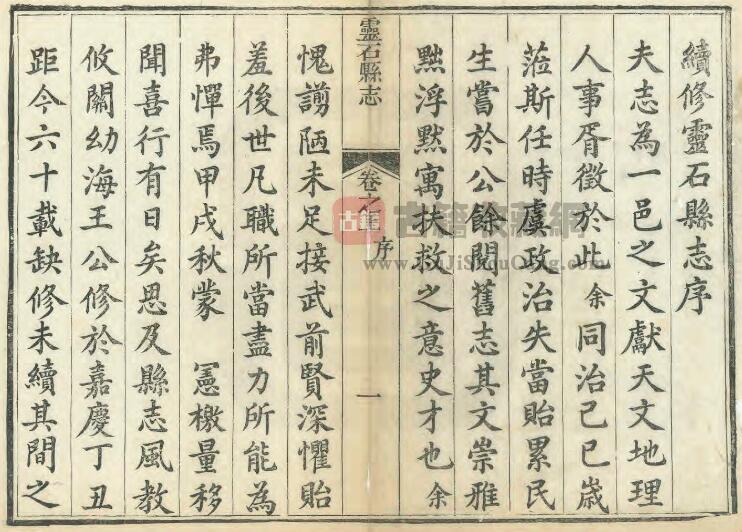 續修靈石縣志序
夫志為一邑之文獻天文地理
人事胥徵於此余同治己巳歲
蒞斯任時虞政治失當貽累民
生嘗於公餘閱舊志其文崇雅
黜浮默寓扶救之意史才也余
靈石縣志
卷之 序
一
愧謭陋未足接武前賢深懼貽
羞後世凡職所當盡力所能為
弗憚焉甲戌秋蒙 憲檄量移
聞喜行有日矣思及縣志風教
攸關幼海王公修於嘉慶丁丑
距今六十載缺修未續其間之
古籍
古籍收藏網